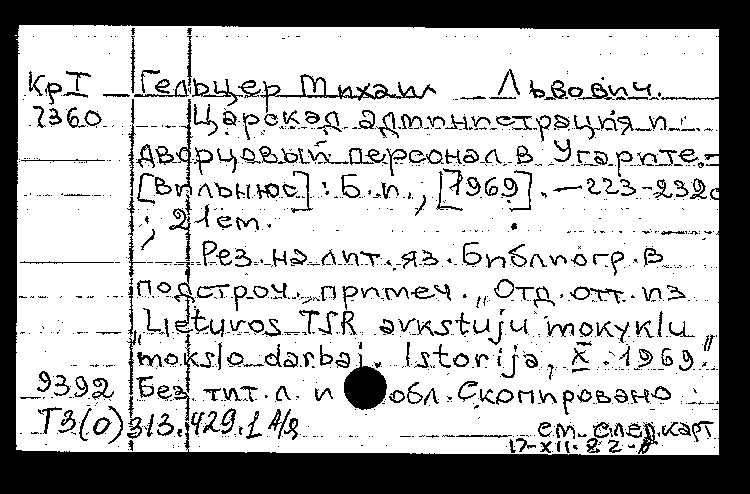 КрI Гельцер Михаил Львович.
7360 Царская администрация и
дворцовый персонал в Угарите.-
[Вильнюс]: Б.и., [1969]. -223-232с
; 21см.
Рез. на лит. яз. Библиогр. в
подстроч. примеч. "Отд. отт. из
"Lietuvos TSR avkstuju mokyklu
mokslo darbai. Istorija, X. 1969."
9392 Без тит. л. и обл. Скопировано
Т3(0)313.429.1 А/я см. след. карт
17-XII-82-